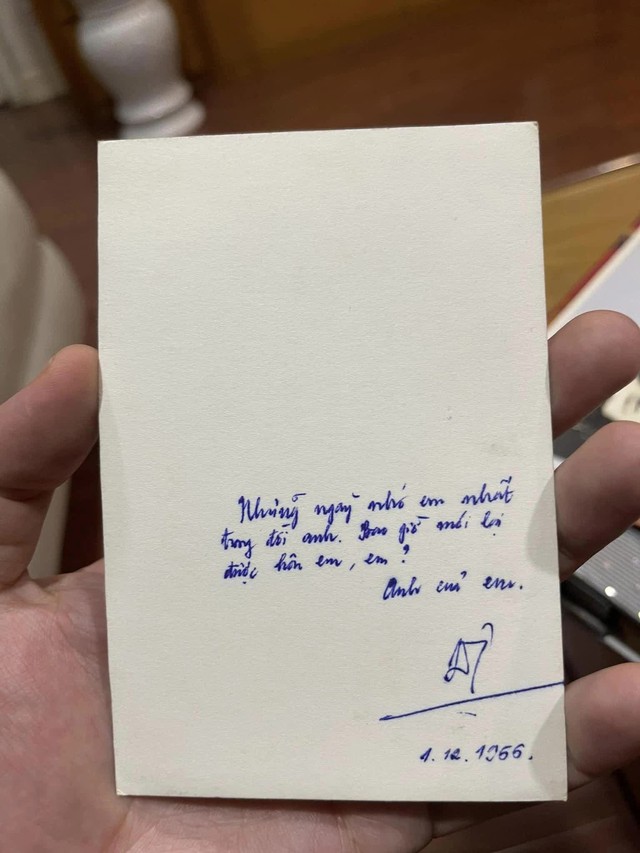 Những ngày nhớ em nhất
trong đời anh. Bao giờ mới lại
được hôn em, em?
Anh của em.
1.12.1966.